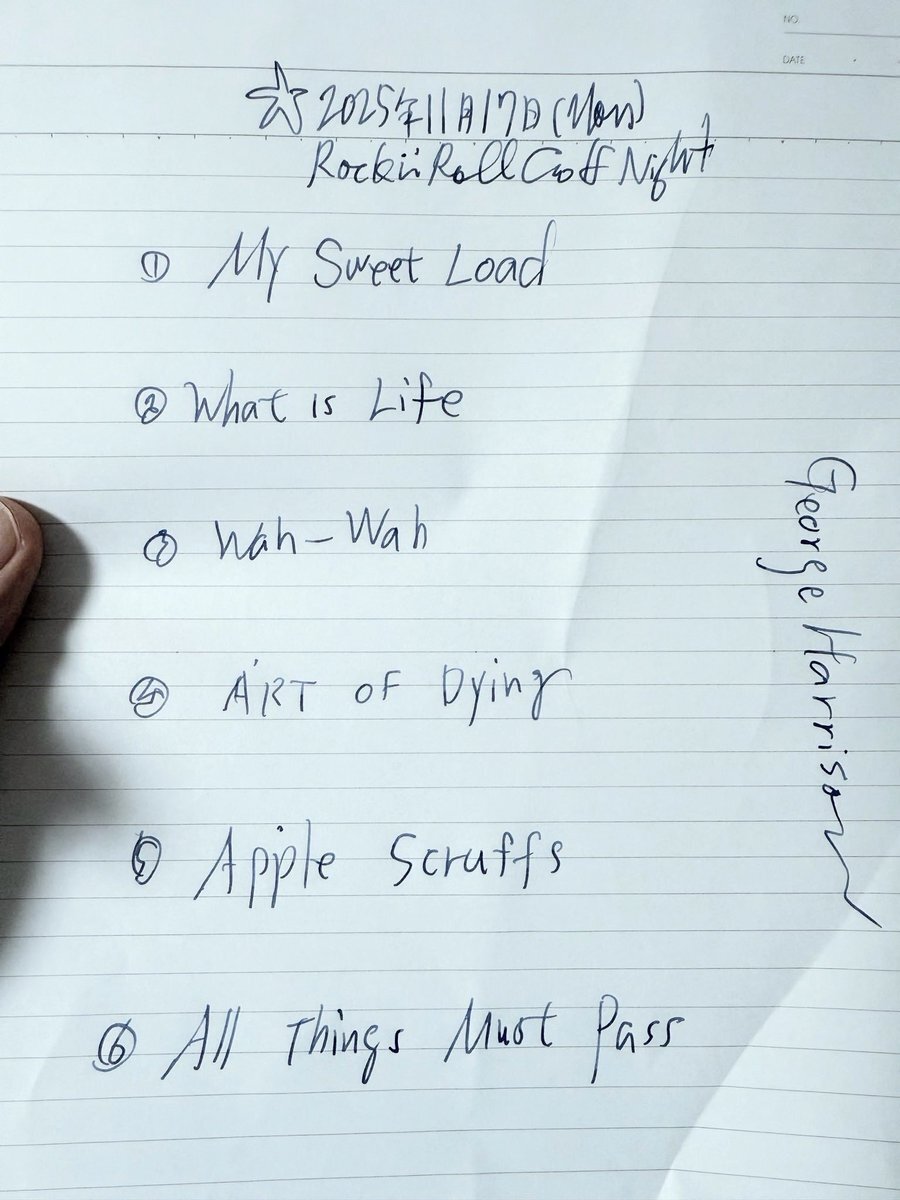 NO.
DATE
☆2025年11月17日(Mon)
Rock'n Roll Goff Night
① My Sweet Load
② What is Life
③ Wah-Wah
④ ART OF Dying
⑤ Apple Scruffs
⑥ All Things Must Pass
George Harrison